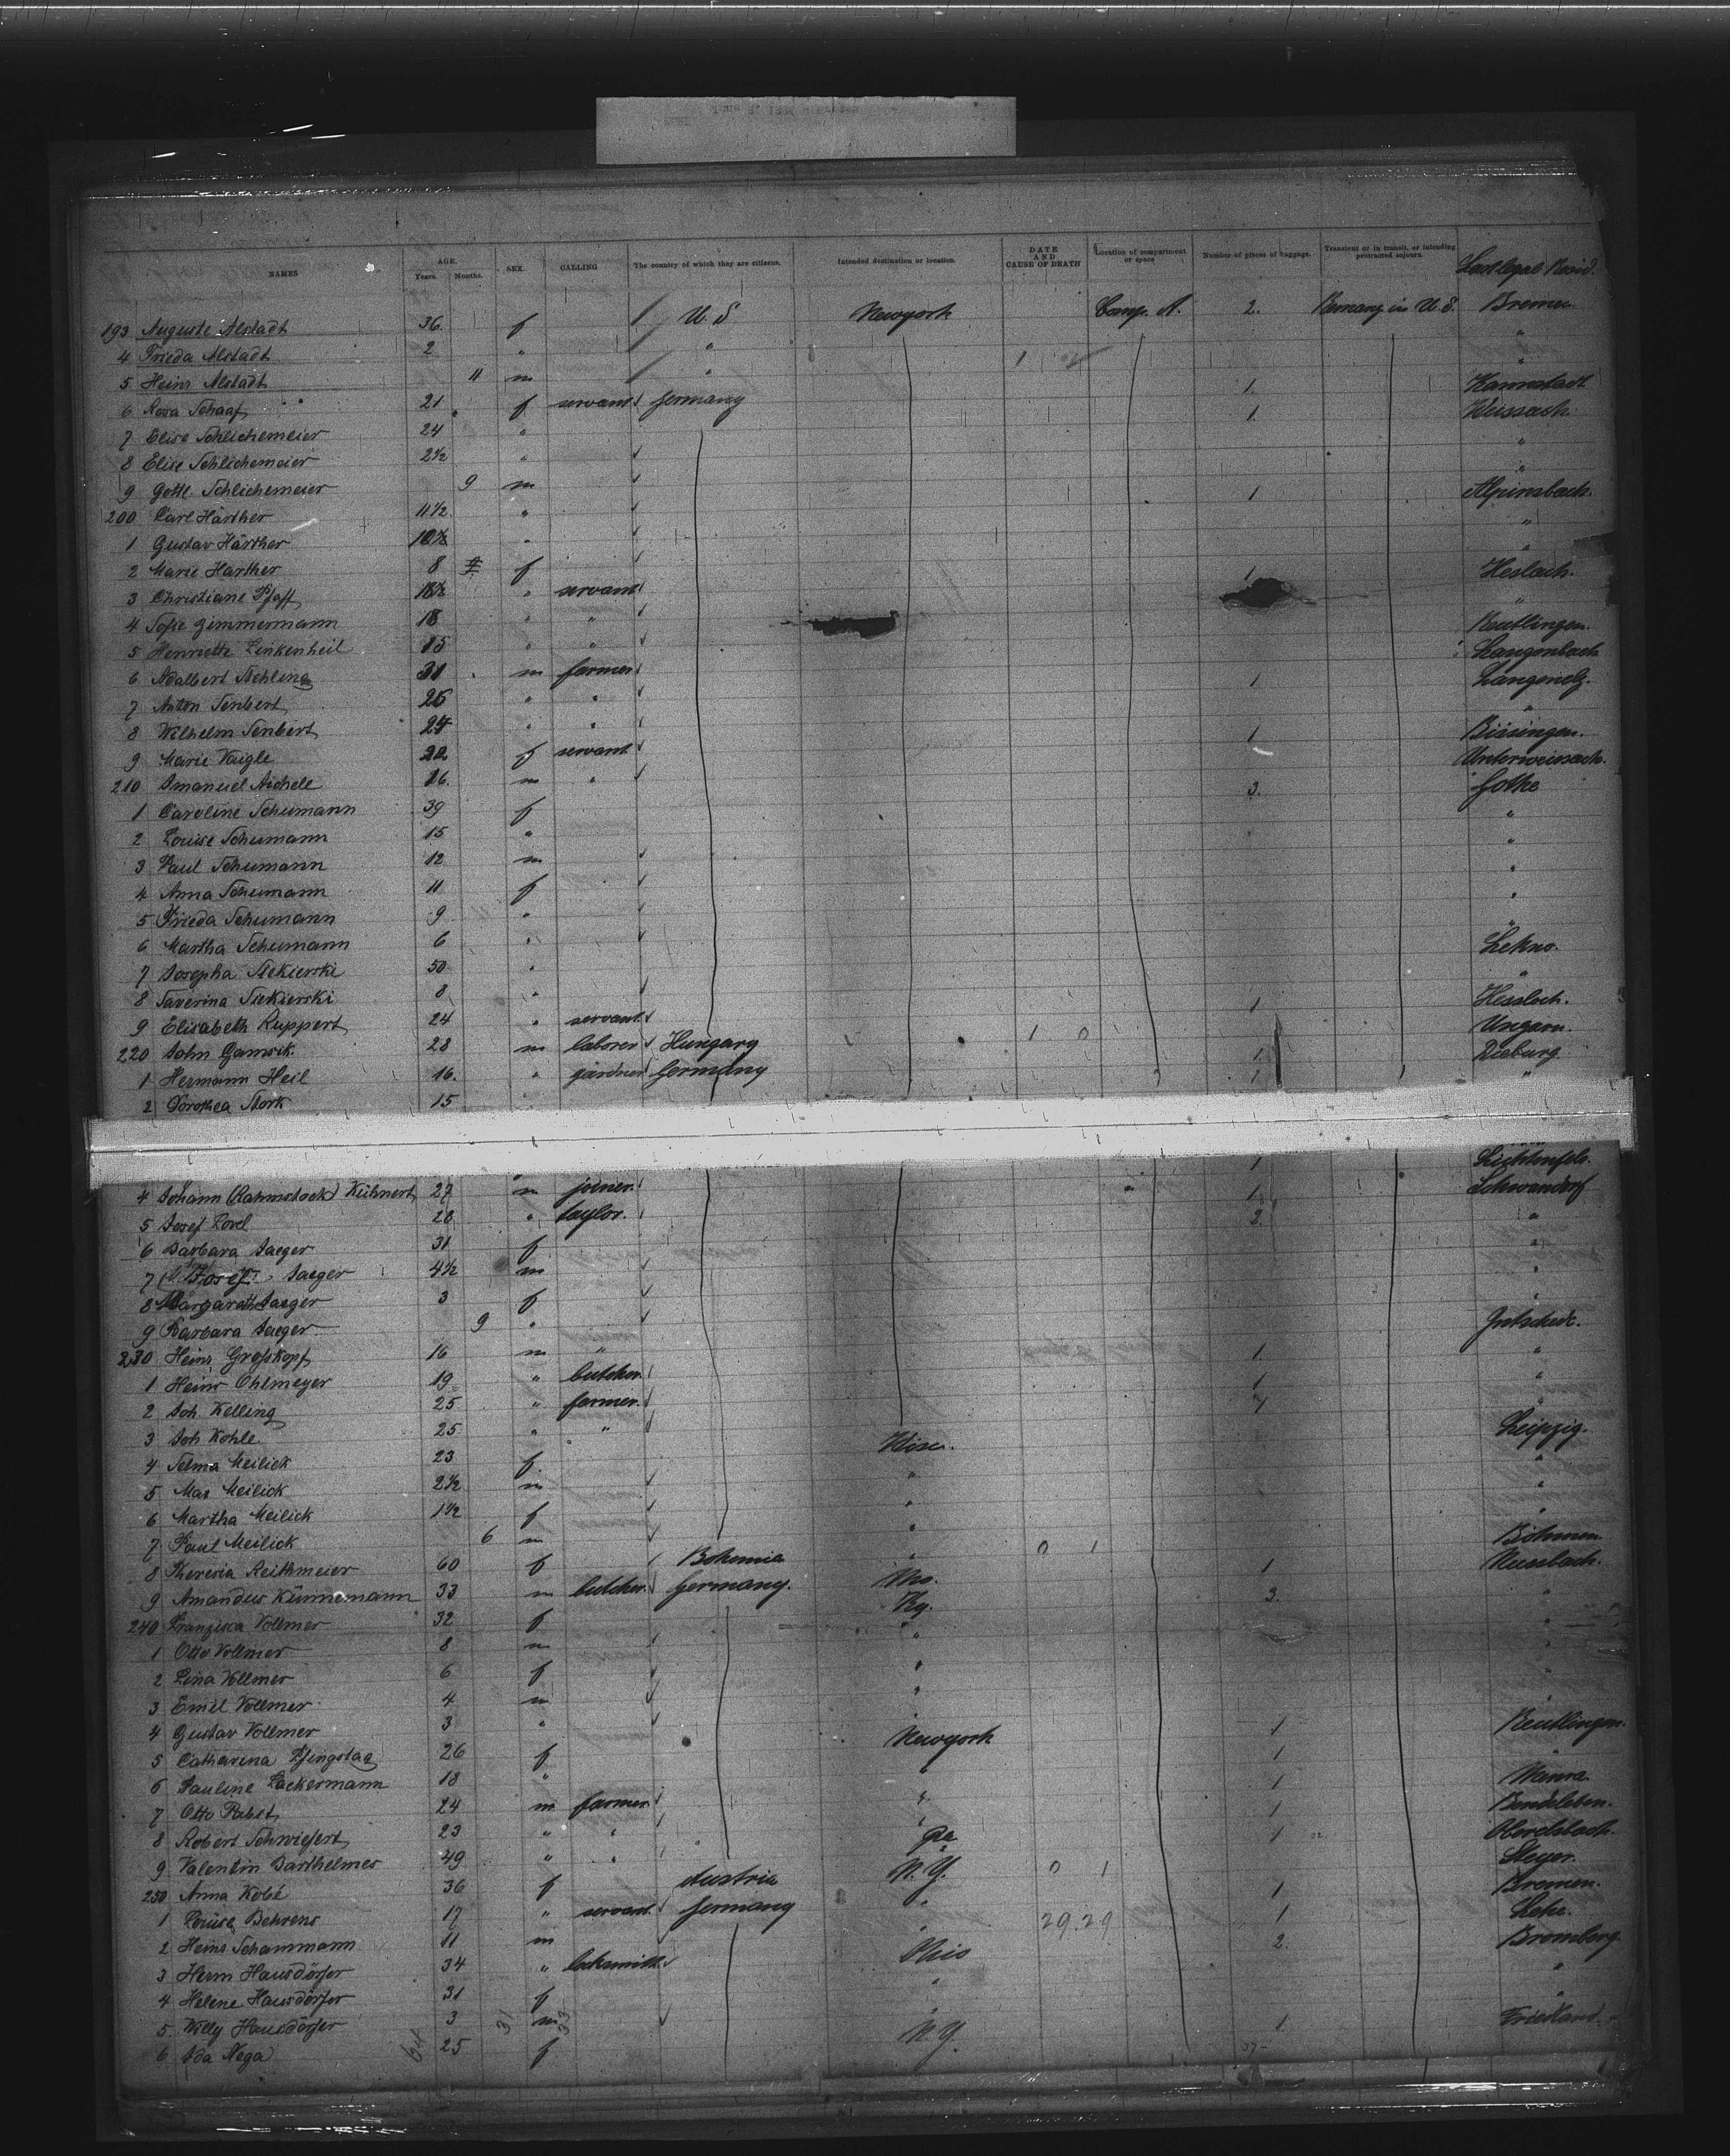 NAMES AGE. Years. Months. SEX. CALLING The country of which they are citizens. Intended destination or location. DATE AND CAUSE OF DEATH Location of compartment or space Number of pieces of baggage. Transient or in transit, or intending protracted sojourn. Last legal Resid.
193 Auguste Alstadt 36 f U.S Newyork Comp. A. 2. Bremen
4 Frieda Alstadt 2 " " "
5 Heinr Alstadt 11 m " "
6 Rosa Schaaf 21 f servant Germany 1. Kannstadt
7 Elise Schlichemeier 24 " 1. Weissach
8 Elise Schlichemeier 2½ " "
9 Gottl. Schlichemeier 9 m "
200 Carl Härther 11½ " 1 Alpirsbach.
1 Gustav Härther 10½ " "
2 Marie Harther 8 f "
3 Christiane Pfaff 18½ " servant 1 Heslach.
4 Sofie Zimmermann 18 " " "
5 Henriette Linkenheil 15 " " Reutlingen.
6 Adalbert Nehling 31 m farmer Langenbach
7 Anton Senbert 26 " " 1 Langenelz.
8 Wilhelm Senbert 24 " " "
9 Marie Vaigle 22 f servant 1 Bissingen.
210 Imanuel Aichele 16 m " Unterweissach.
1 Caroline Schumann 39 f 3. Gotha
2 Louise Schumann 15 " "
3 Paul Schumann 12 m "
4 Anna Schumann 11 f "
5 Frieda Schumann 9 " "
6 Martha Schumann 6 " "
7 Josepha Siekierski 50 " Lekno.
8 Saverina Siekierski 8 " "
9 Elisabeth Ruppert 24 " servant 1 Hessloch.
220 John Gamsik. 28 m laborer Hungary 1 0 Ungarn.
1 Hermann Heil 16. " gardner Germany 1. Dieburg
2 Dorothea Stork 15 " 1 "
1 Lichtenfels.
4 Johann (Rahmstock) Kühnert 27 m joiner. 1. Schwandorf
5 Josef Lovel 28 " taylor. 2. "
6 Barbara Jaeger 31 f "
7 Josef Jaeger 4½ m "
8 Margareth Jaeger 3 f "
9 Barbara Jaeger 9 "
230 Heinr. Großkopf 16 m " 1. Intschede.
1 Heinr Ohlmeyer 19 " butcher 1 "
2 Joh. Kelling 25 " farmer. "
3 Joh Kohle 25 " "
4 Selma Meilick 23 f Wisc. Leipzig.
5 Max Meilick 2½ m " "
6 Martha Meilick 1½ f " "
7 Paul Meilick 6 m " "
8 Theresia Reithmeier 60 f Bohemia " 0 1 1 Böhmen
9 Amandus Künnemann 33 m butcher. Germany. Mo. 3. Nussbach.
240 Franzisca Vollmer 32 f Ky. "
1 Otto Vollmer 8 m " "
2 Lina Vollmer 6 f "
3 Emil Vollmer 4 m "
4 Gustav Vollmer 3 " " "
5 Catharina Pfingstag 26 f Newyork 1 Reutlingen.
6 Pauline Lackermann 18 " " 1 "
7 Otto Pabst 24 m farmer " 1
8 Robert Schwiefert 23 " " " 1 Bendeleben.
9 Valentin Barthelmes 49 " " Pa 1
250 Anna Kobé 36 f Austria N.Y. 0 1 Steyer.
1 Louise Behrens 17 " servant Germany " 1 Bremen.
2 Heinr. Schammann 11 m " 29. 29 1 Lehe.
3 Herm Hausdörfer 34 " locksmith Ohio 2. Bromberg.
4 Helene Hausdörfer 31 f " "
5 Willy Hausdörfer 3 m " "
6 Ida Nega 25 f N.Y. 1 Friedland.
64 31 33 37-